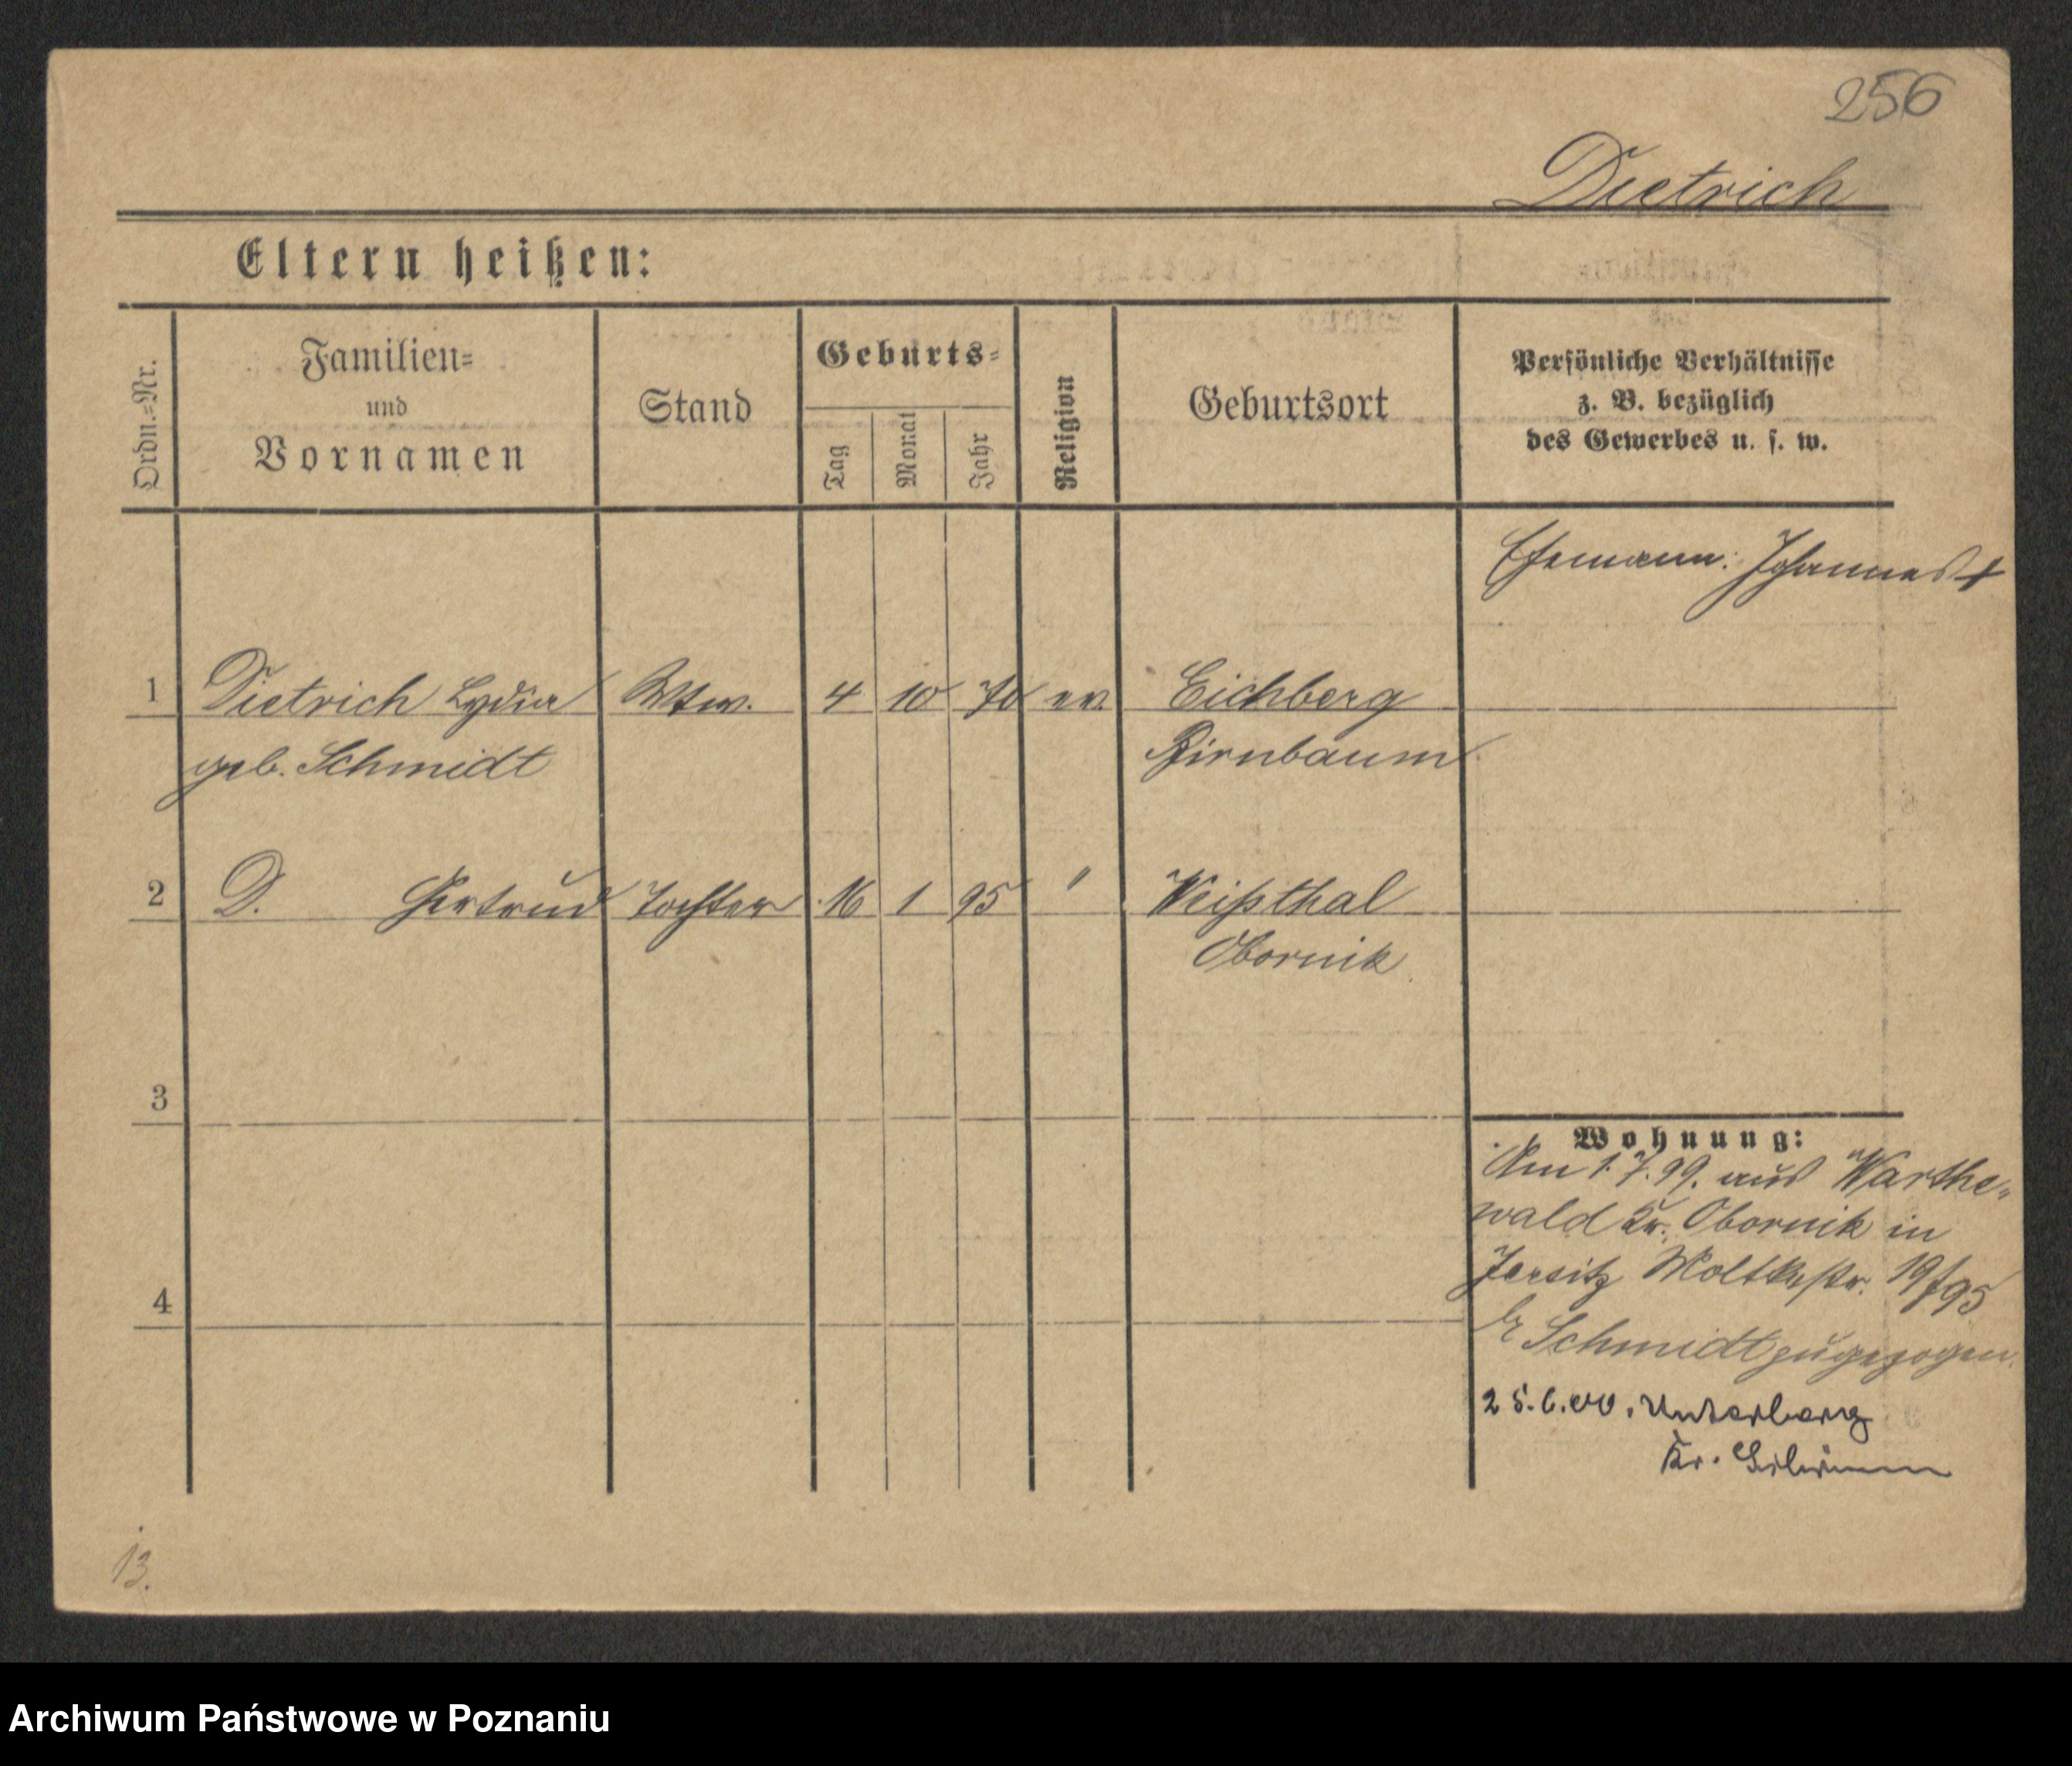 256
Dietrich
Eltern heißen:
Ordn.=Nr.
Familien=
und
Vornamen
Stand
Geburts=
Tag
Monat
Jahr
Religion
Geburtsort
Persönliche Verhältnisse
z. B. bezüglich
des Gewerbes u. s. w.
Ehemann: Johannes †
1 Dietrich Lydia Wtw. 4 10 70 ev. Eichberg
geb. Schmidt Birnbaum
2 D. Gertrud Tochter 16 1 95 " Weißthal
Obornik
3
Wohnung:
Am 1.7.99. aus Warthe=
wald Kr. Obornik in
Jersitz Moltkestr. 19/95
4
Schmidt zugezogen.
25.6.00. Unterberg
Kr.
13.
Archiwum Państwowe w Poznaniu